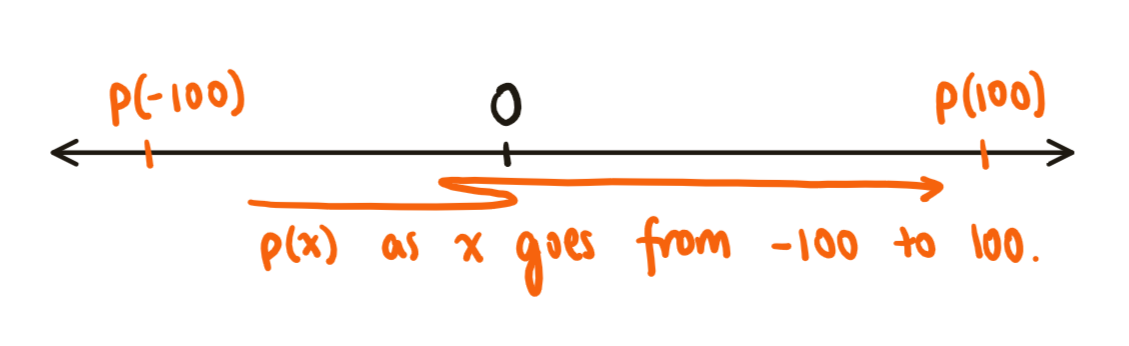 p(-100) 0 p(100)
p(x) as x goes from -100 to 100.